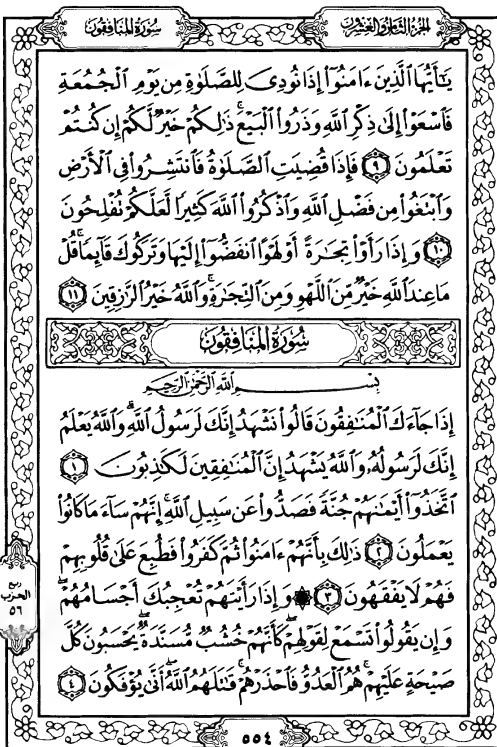 سورة المنافقون
الجزء الثامن والعشرون
يَٰٓأَيُّهَا ٱلَّذِينَ ءَامَنُوٓا۟ إِذَا نُودِىَ لِلصَّلَوٰةِ مِن يَوْمِ ٱلْجُمُعَةِ
فَٱسْعَوْا۟ إِلَىٰ ذِكْرِ ٱللَّهِ وَذَرُوا۟ ٱلْبَيْعَ ۚ ذَٰلِكُمْ خَيْرٌ لَّكُمْ إِن كُنتُمْ
تَعْلَمُونَ ٩ فَإِذَا قُضِيَتِ ٱلصَّلَوٰةُ فَٱنتَشِرُوا۟ فِى ٱلْأَرْضِ
وَٱبْتَغُوا۟ مِن فَضْلِ ٱللَّهِ وَٱذْكُرُوا۟ ٱللَّهَ كَثِيرًا لَّعَلَّكُمْ تُفْلِحُونَ
١٠ وَإِذَا رَأَوْا۟ تِجَٰرَةً أَوْ لَهْوًا ٱنفَضُّوٓا۟ إِلَيْهَا وَتَرَكُوكَ قَآئِمًا ۚ قُلْ
مَا عِندَ ٱللَّهِ خَيْرٌ مِّنَ ٱللَّهْوِ وَمِنَ ٱلتِّجَٰرَةِ ۚ وَٱللَّهُ خَيْرُ ٱلرَّٰزِقِينَ ١١
سُورَةُ المُنَافِقُونَ
بِسْمِ ٱللَّهِ ٱلرَّحْمَٰنِ ٱلرَّحِيمِ
إِذَا جَآءَكَ ٱلْمُنَٰفِقُونَ قَالُوا۟ نَشْهَدُ إِنَّكَ لَرَسُولُ ٱللَّهِ ۗ وَٱللَّهُ يَعْلَمُ
إِنَّكَ لَرَسُولُهُۥ وَٱللَّهُ يَشْهَدُ إِنَّ ٱلْمُنَٰفِقِينَ لَكَٰذِبُونَ ١
ٱتَّخَذُوٓا۟ أَيْمَٰنَهُمْ جُنَّةً فَصَدُّوا۟ عَن سَبِيلِ ٱللَّهِ ۚ إِنَّهُمْ سَآءَ مَا كَانُوا۟
يَعْمَلُونَ ٢ ذَٰلِكَ بِأَنَّهُمْ ءَامَنُوا۟ ثُمَّ كَفَرُوا۟ فَطُبِعَ عَلَىٰ قُلُوبِهِمْ
فَهُمْ لَا يَفْقَهُونَ ٣ ۞ وَإِذَا رَأَيْتَهُمْ تُعْجِبُكَ أَجْسَامُهُمْ ۖ
وَإِن يَقُولُوا۟ تَسْمَعْ لِقَوْلِهِمْ ۖ كَأَنَّهُمْ خُشُبٌ مُّسَنَّدَةٌ ۖ يَحْسَبُونَ كُلَّ
صَيْحَةٍ عَلَيْهِمْ ۚ هُمُ ٱلْعَدُوُّ فَٱحْذَرْهُمْ ۚ قَٰتَلَهُمُ ٱللَّهُ ۖ أَنَّىٰ يُؤْفَكُونَ ٤
ربع
الحزب
٥٦
٥٥٤